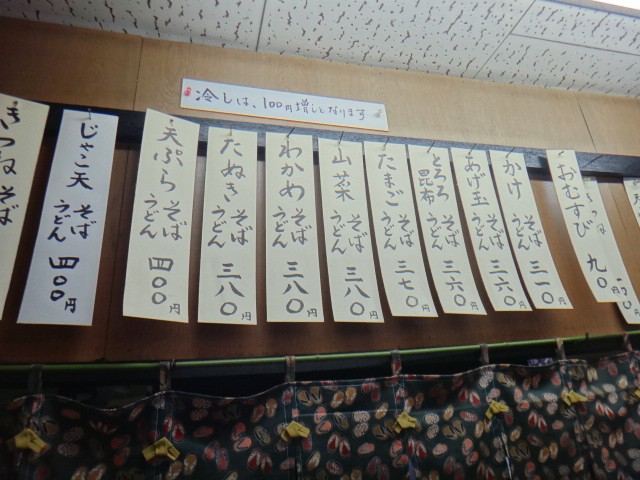 冷しは、100円増しとなります
おむすび 九〇円
かけ そば うどん 三一〇円
あげ玉 そば うどん 三六〇円
とろろ昆布 そば うどん 三六〇円
たまご そば うどん 三七〇円
山菜 そば うどん 三八〇円
わかめ そば うどん 三八〇円
たぬき そば うどん 三八〇円
天ぷら そば うどん 四〇〇円
じゃこ天 そば うどん 四〇〇円
きつねそば